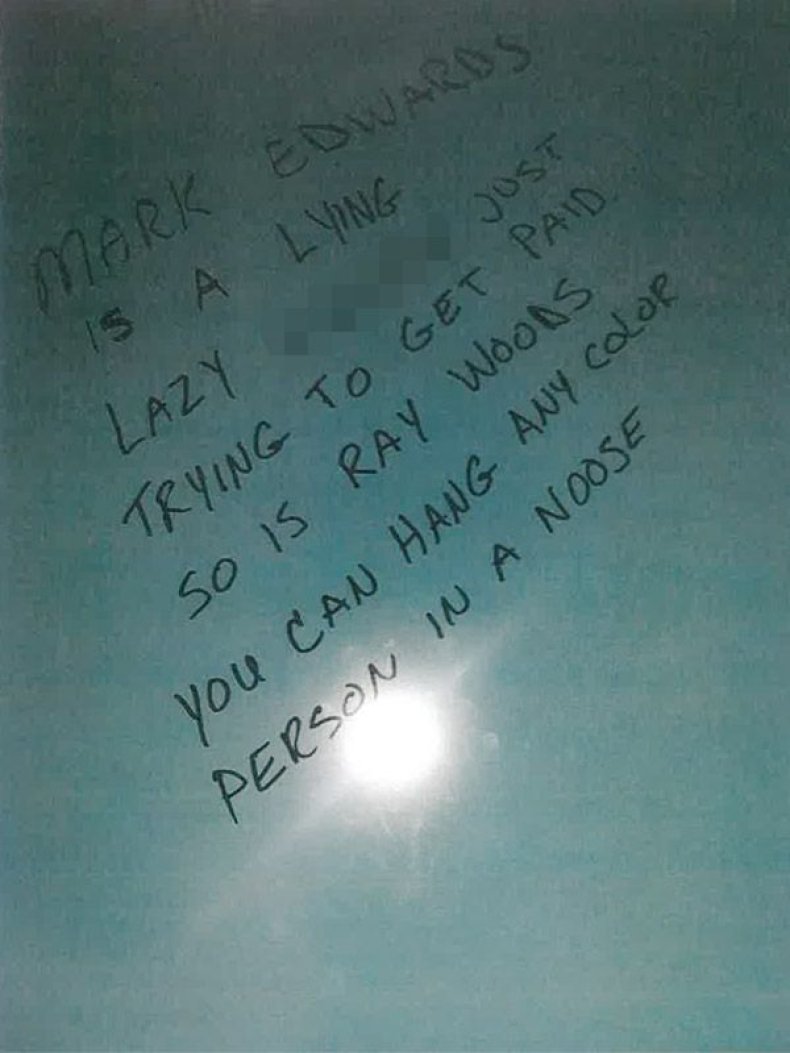 MARK EDWARDS
IS A LYING
LAZY JUST
TRYING TO GET PAID
SO IS RAY WOODS
YOU CAN HANG ANY COLOR
PERSON IN A NOOSE